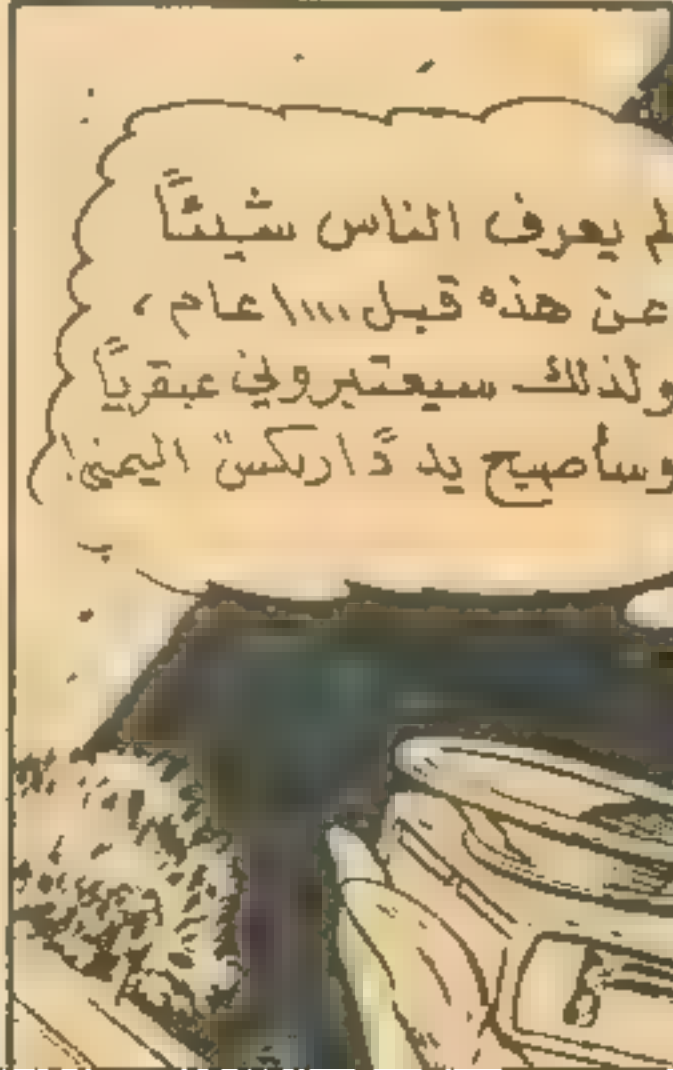 لم يعرف الناس شيئاً
عن هذه قبل ١٠٠٠٠ عام ،
ولذلك سيعتبروني عبقرياً
وسأصبح يد دَّاركسّ اليمنى!